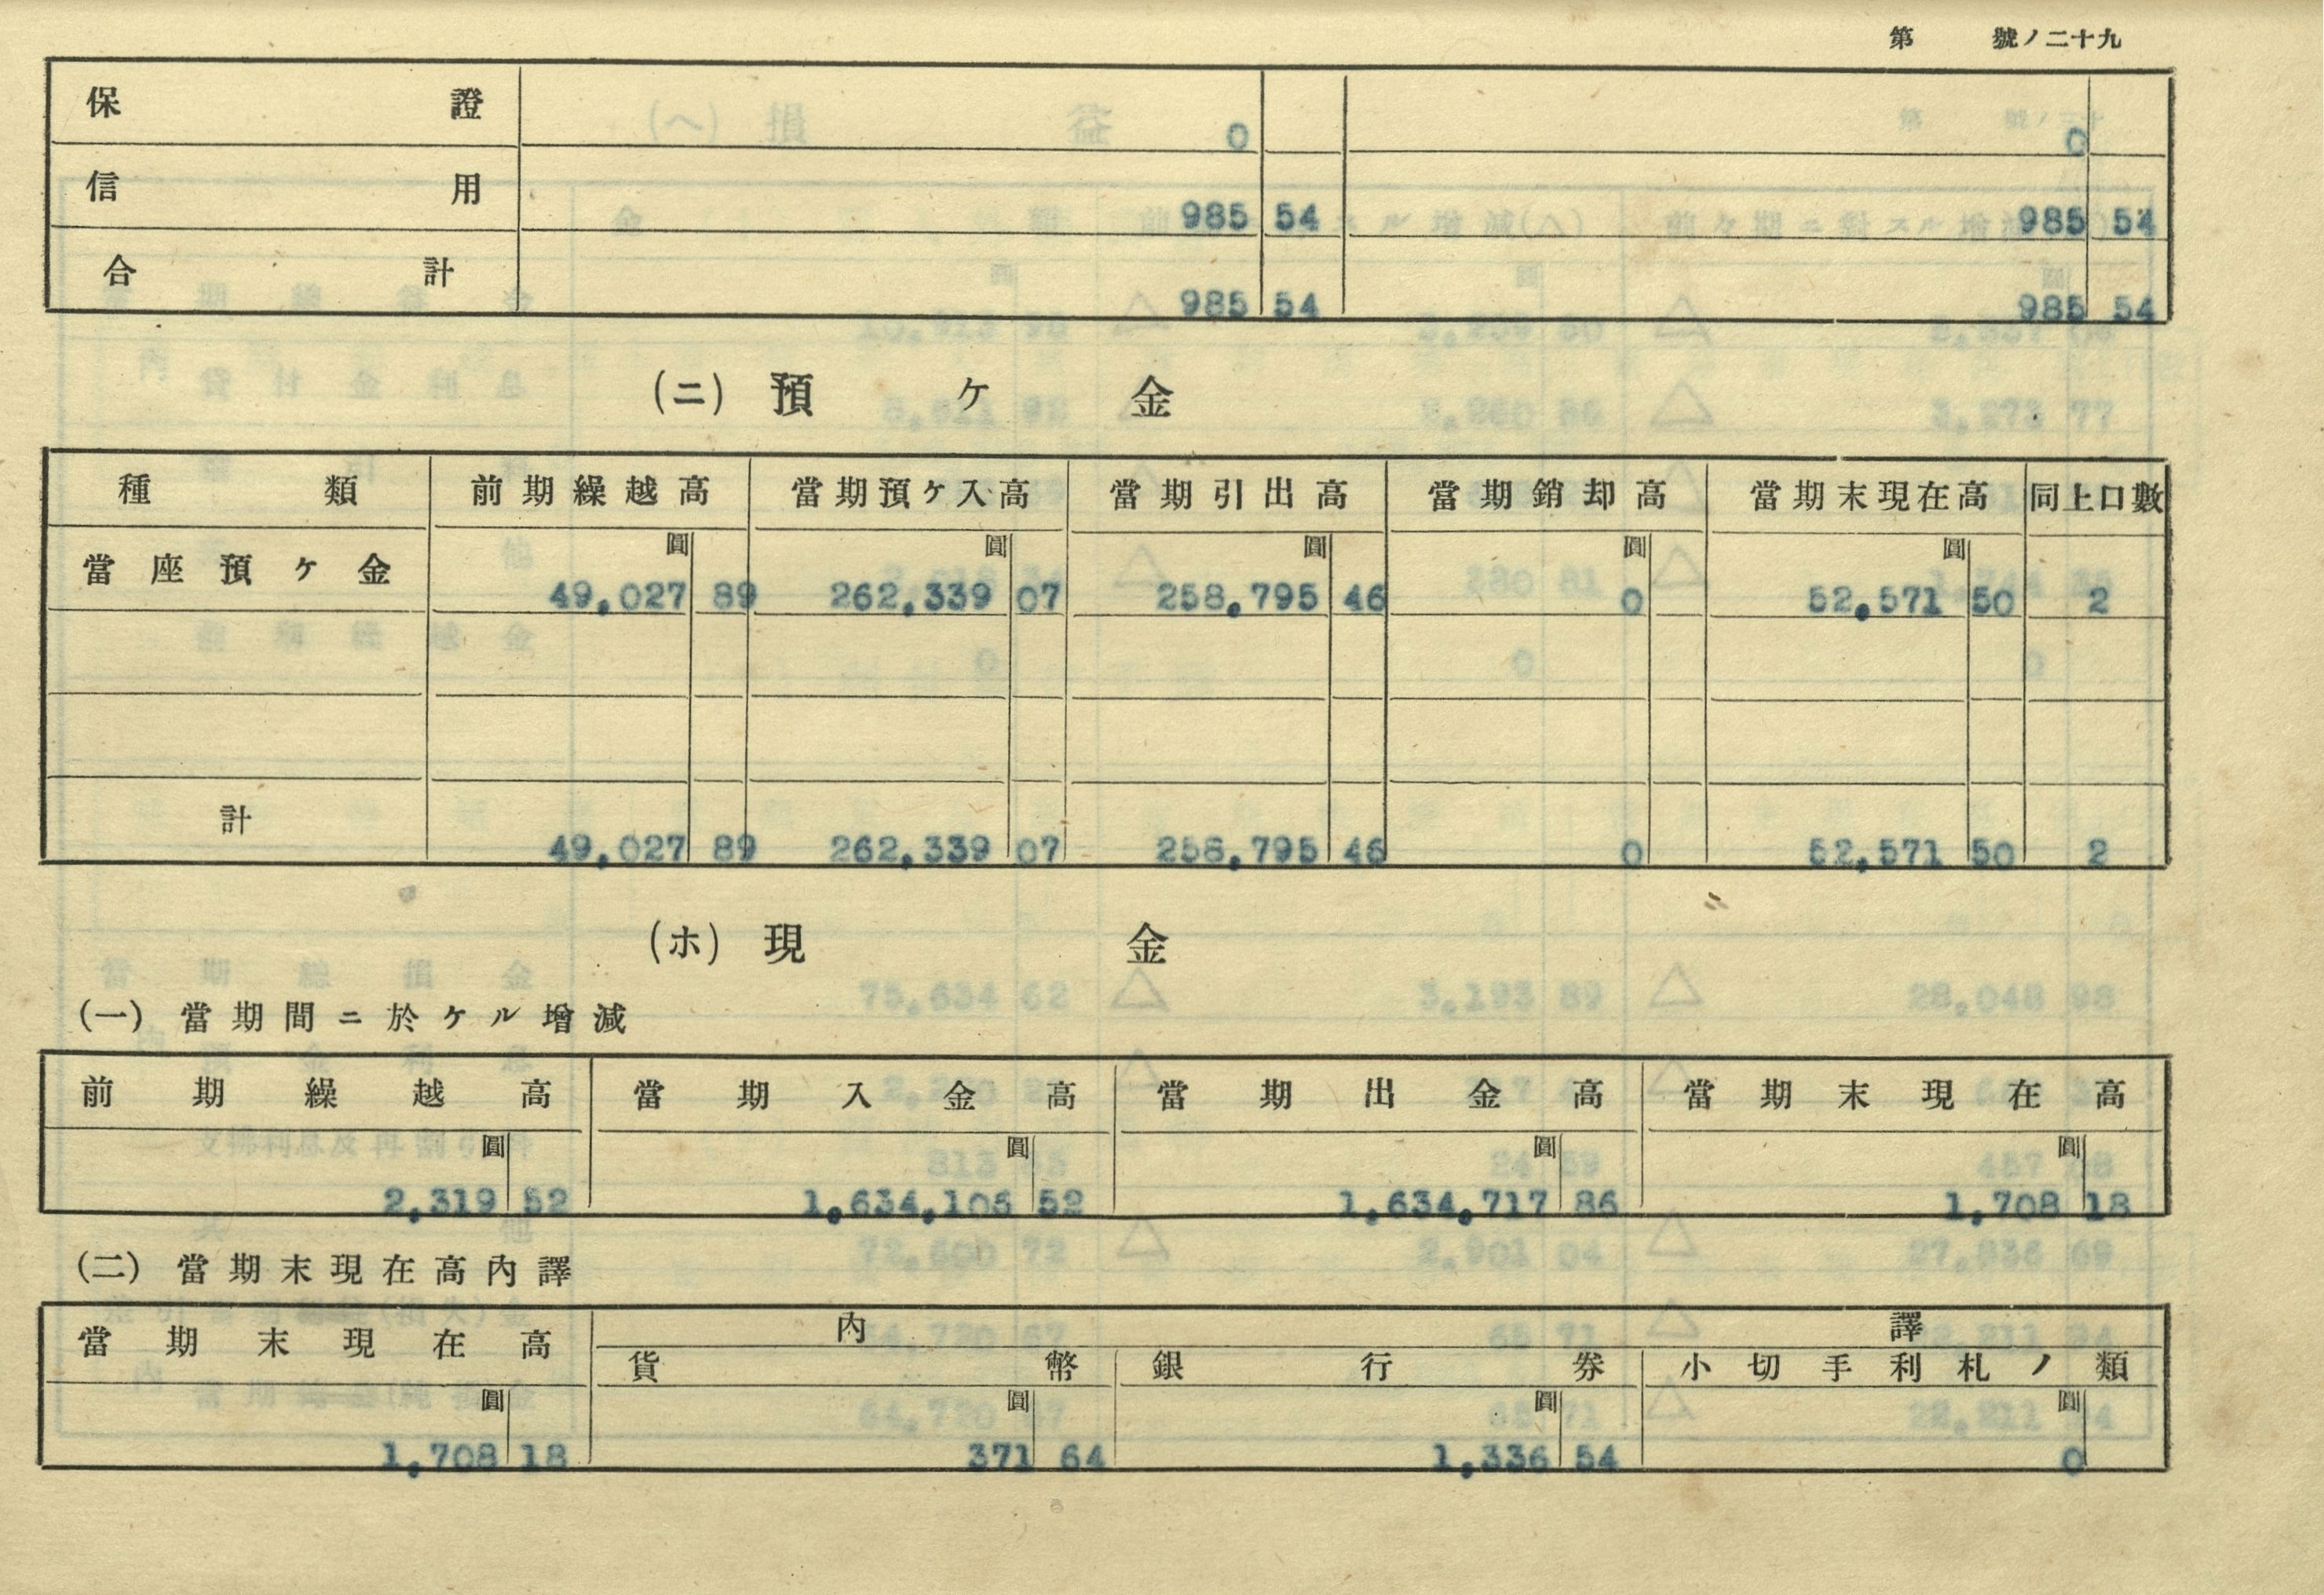 第 號ノ二十九
保證 0 0
信用 985 54 985 54
合計 985 54 985 54
(ニ) 預ケ金
種類 前期繰越高 當期預ケ入高 當期引出高 當期銷却高 當期末現在高 同上口數
圓 圓 圓 圓 圓
當座預ケ金 49,027 89 262,339 07 258,795 46 0 52,571 50 2
計 49,027 89 262,339 07 258,795 46 0 52,571 50 2
(ホ) 現金
(一) 當期間ニ於ケル增減
前期繰越高 當期入金高 當期出金高 當期末現在高
圓 圓 圓 圓
2,319 52 1,634,106 52 1,634,717 86 1,708 18
(二) 當期末現在高內譯
當期末現在高 內譯
貨幣 銀行券 小切手利札ノ類
圓 圓 圓 圓
1,708 18 371 64 1,336 54 0